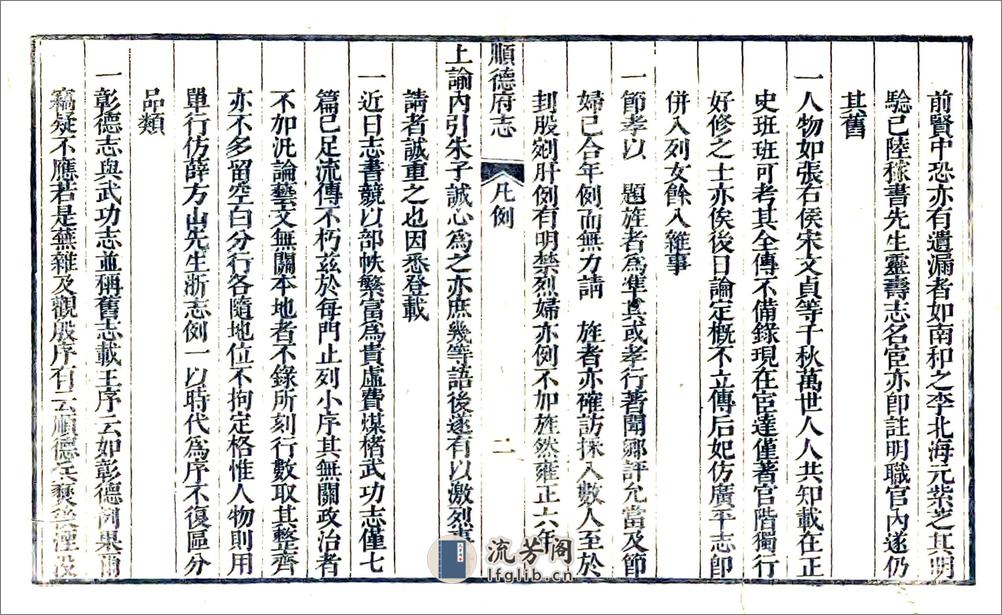 前賢中恐亦有遺漏者如南和之李北海元紫芝其明
驗已陸稼書先生靈壽志名宦亦卽註明職官內遂仍
其舊
一人物如張右侯宋文貞等千秋萬世人人共知載在正
史班班可考其全傳不備錄現在宦達僅著官階獨行
好修之士亦俟後日論定概不立傳后妃仿廣平志卽
併入列女餘入雜事
一節孝以 題旌者為準其或孝行著聞鄉評允當及節
婦已合年例而無力請 旌者亦確訪採入數人至於
刲股剜肝例有明禁烈婦亦例不加旌然雍正六年
順德府志
凡例
二
上諭內引朱子誠心為之亦庶幾等語後遂有以激烈事
請者誠重之也因悉登載
一近日志書競以部帙繁富為貴虛費煤楮武功志僅七
篇已足流傳不朽玆於每門止列小序其無關政治者
不加汎論藝文無關本地者不錄所刻行數取其整齊
亦不多留空白分行各隨地位不拘定格惟人物則用
單行仿薛方山先生浙志例一以時代為序不復區分
品類
一彰德志與武功志並稱舊志載王序云如彰德例果爾
竊疑不應若是蕪雜及觀殷序有云順德兵燹後湮沒
流芳阁
lfglib.cn